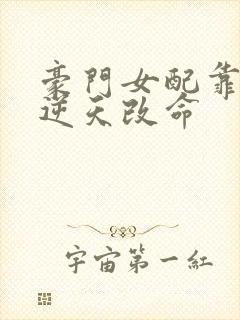 豪門女配靠
逆天改命
宇宙第一紅